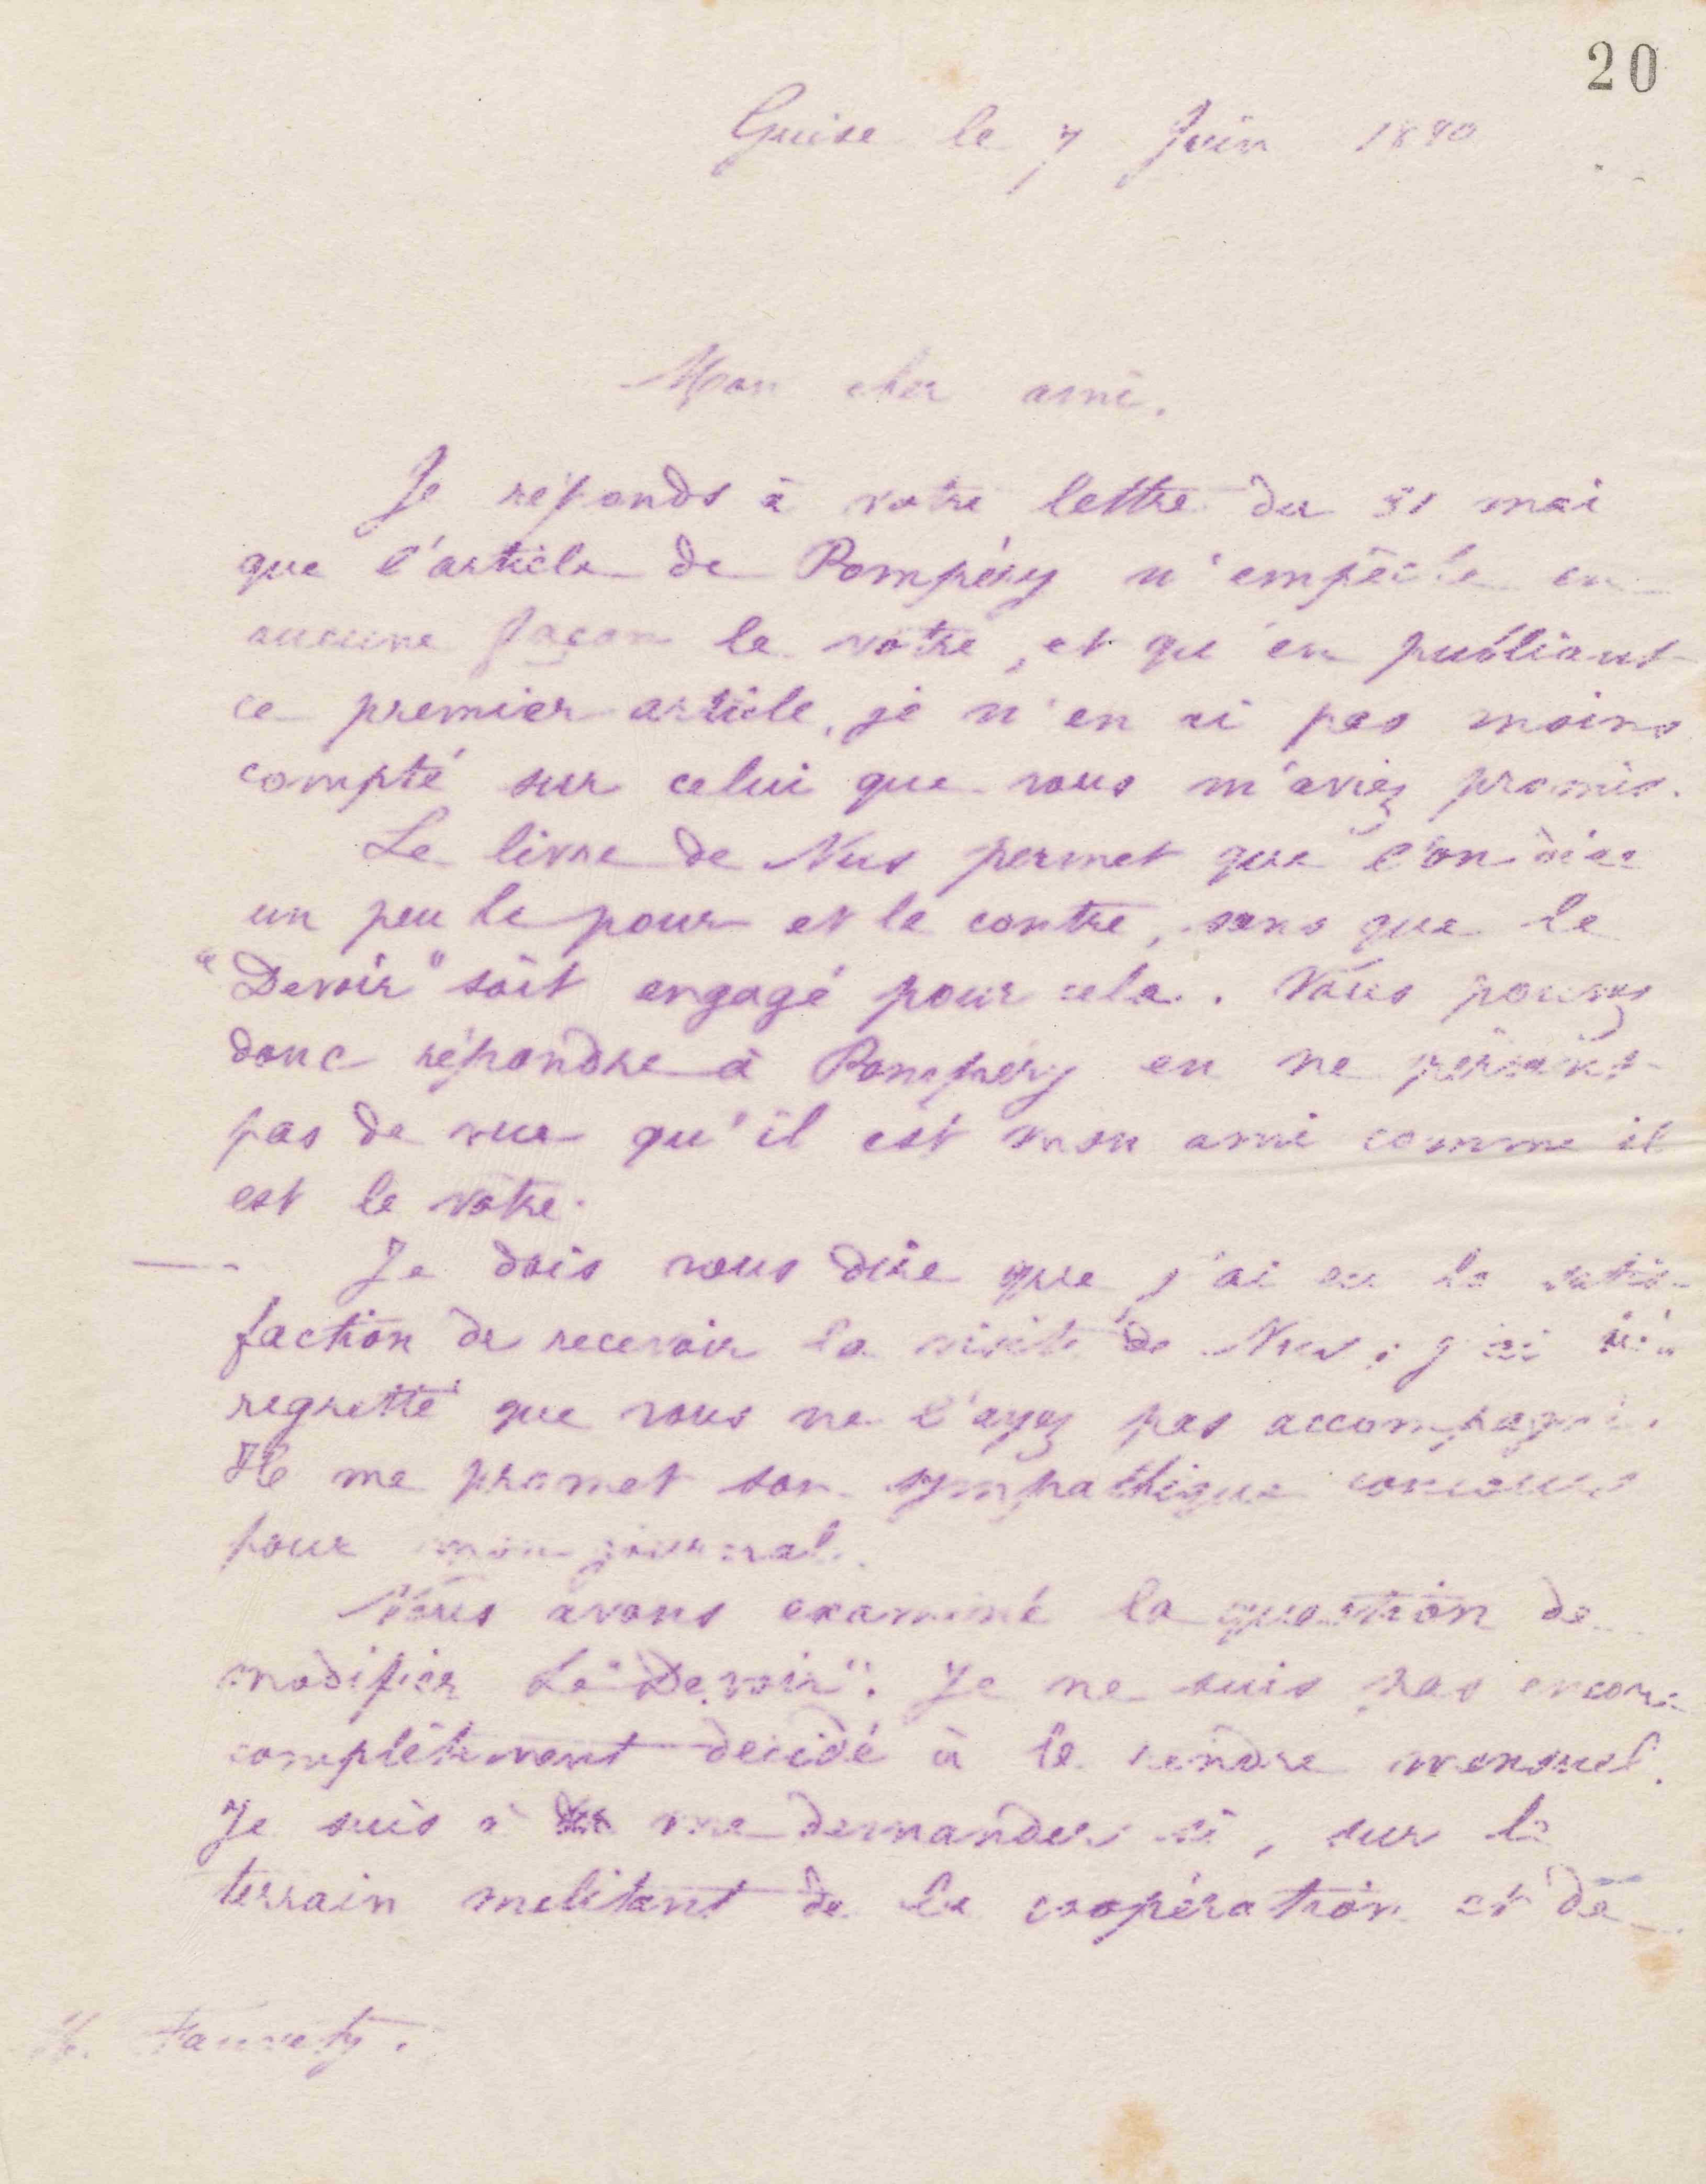 20
Guise le 7 Juin 1890
Mon cher ami.
Je réponds à votre lettre du 31 mai
que l'article de Pompéry n'empêche en
aucune façon le votre, et qu'en publiant
ce premier article, je n'en ai pas moins
compté sur celui que vous m'aviez promis.
Le livre de Nus permet que l'on dise
un peu le pour et le contre, sans que le
"Devoir" soit engagé pour cela. Vous pouvez
donc répondre à Pompéry en ne perdant
pas de vue qu'il est mon ami comme il
est le vôtre.
Je dois vous dire que j'ai eu la satis-
faction de recevoir la visite de Nus ; j'ai
regretté que vous ne l'ayez pas accompagné.
Il me promet son sympathique concours
pour mon journal.
Nous avons examiné la question de
modifier Le "Devoir". Je ne suis pas encore
complètement décidé à le rendre mensuel.
Je suis à me demander si, sur le
terrain melitant de la coopération et de
Fauvety.